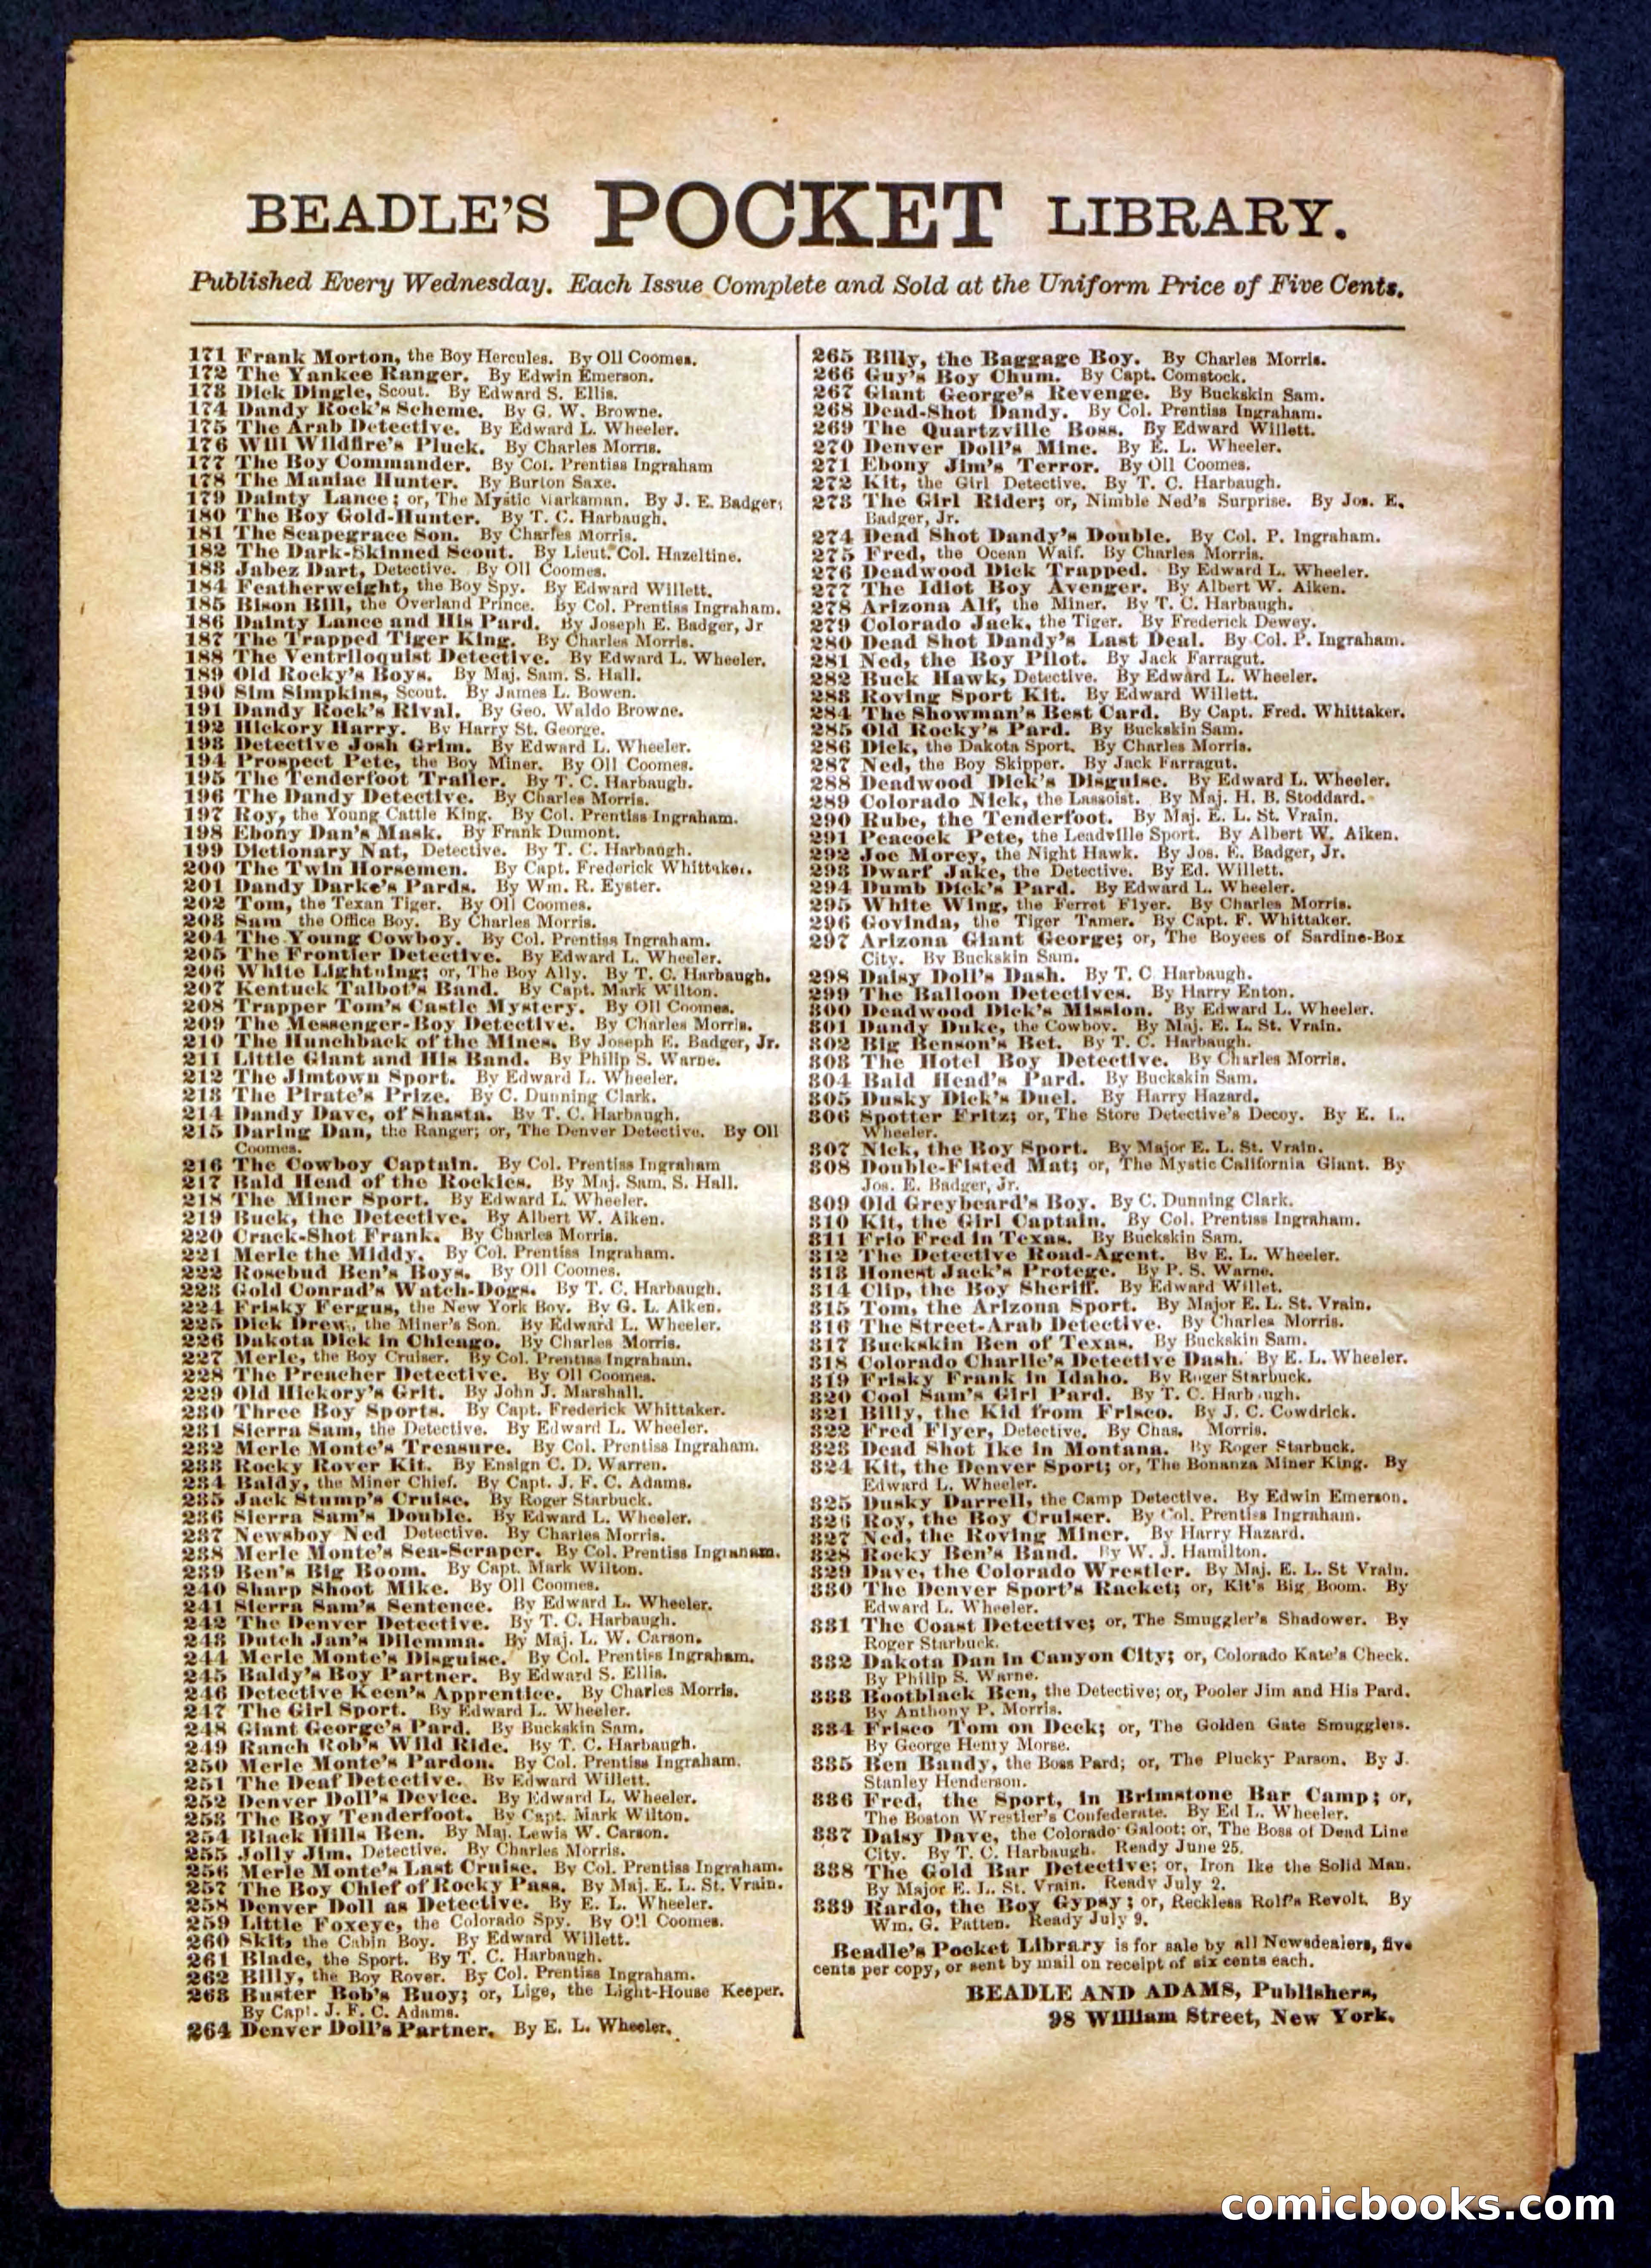 BEADLE'S POCKET LIBRARY.
Published Every Wednesday. Each Issue Complete and Sold at the Uniform Price of Five Cents.
171 Frank Morton, the Boy Hercules. By Oll Coomes.
172 The Yankee Ranger. By Edwin Emerson.
173 Dick Dingle, Scout. By Edward S. Ellis.
174 Dandy Rock's Scheme. By G. W. Browne.
175 The Arab Detective. By Edward L. Wheeler.
176 Will Wildfire's Pluck. By Charles Morris.
177 The Boy Commander. By Col. Prentiss Ingraham
178 The Maniac Hunter. By Burton Saxe.
179 Dainty Lance; or, The Mystic Marksman. By J. E. Badger;
180 The Boy Gold-Hunter. By T. C. Harbaugh.
181 The Scapegrace Son. By Charles Morris.
182 The Dark-Skinned Scout. By Lieut. Col. Hazeltine.
183 Jabez Dart, Detective. By Oll Coomes.
184 Featherweight, the Boy Spy. By Edward Willett.
185 Bison Bill, the Overland Prince. By Col. Prentiss Ingraham.
186 Dainty Lance and His Pard. By Joseph E. Badger, Jr
187 The Trapped Tiger King. By Charles Morris.
188 The Ventriloquist Detective. By Edward L. Wheeler.
189 Old Rocky's Boys. By Maj. Sam. S. Hall.
190 Sim Simpkins, Scout. By James L. Bowen.
191 Dandy Rock's Rival. By Geo. Waldo Browne.
192 Hickory Harry. By Harry St. George.
193 Detective Josh Grim. By Edward L. Wheeler.
194 Prospect Pete, the Boy Miner. By Oll Coomes.
195 The Tenderfoot Trailer. By T. C. Harbaugh.
196 The Dandy Detective. By Charles Morris.
197 Roy, the Young Cattle King. By Col. Prentiss Ingraham.
198 Ebony Dan's Mask. By Frank Dumont.
199 Dictionary Nat, Detective. By T. C. Harbaugh.
200 The Twin Horsemen. By Capt. Frederick Whittaker.
201 Dandy Darke's Pards. By Wm. R. Eyster.
202 Tom, the Texan Tiger. By Oll Coomes.
203 Sam the Office Boy. By Charles Morris.
204 The Young Cowboy. By Col. Prentiss Ingraham.
205 The Frontier Detective. By Edward L. Wheeler.
206 White Lightning; or, The Boy Ally. By T. C. Harbaugh.
207 Kentuck Talbot's Band. By Capt. Mark Wilton.
208 Trapper Tom's Castle Mystery. By Oll Coomes.
209 The Messenger-Boy Detective. By Charles Morris.
210 The Hunchback of the Mines. By Joseph E. Badger, Jr.
211 Little Giant and His Band. By Philip S. Warne.
212 The Jimtown Sport. By Edward L. Wheeler.
213 The Pirate's Prize. By C. Dunning Clark.
214 Dandy Dave, of Shasta. By T. C. Harbaugh.
215 Daring Dan, the Ranger; or, The Denver Detective. By Oll
Coomes.
216 The Cowboy Captain. By Col. Prentiss Ingraham
217 Bald Head of the Rockies. By Maj. Sam. S. Hall.
218 The Miner Sport. By Edward L. Wheeler.
219 Buck, the Detective. By Albert W. Aiken.
220 Crack-Shot Frank. By Charles Morris.
221 Merle the Middy. By Col. Prentiss Ingraham.
222 Rosebud Ben's Boys. By Oll Coomes.
223 Gold Conrad's Watch-Dogs. By T. C. Harbaugh.
224 Frisky Fergus, the New York Boy. By G. L. Aiken.
225 Dick Drew, the Miner's Son. By Edward L. Wheeler.
226 Dakota Dick in Chicago. By Charles Morris.
227 Merle, the Boy Cruiser. By Col. Prentiss Ingraham.
228 The Preacher Detective. By Oll Coomes.
229 Old Hickory's Grit. By John J. Marshall.
230 Three Boy Sports. By Capt. Frederick Whittaker.
231 Sierra Sam, the Detective. By Edward L. Wheeler.
232 Merle Monte's Treasure. By Col. Prentiss Ingraham.
233 Rocky Rover Kit. By Ensign C. D. Warren.
234 Baldy, the Miner Chief. By Capt. J. F. C. Adams.
235 Jack Stump's Cruise. By Roger Starbuck.
236 Sierra Sam's Double. By Edward L. Wheeler.
237 Newsboy Ned Detective. By Charles Morris.
238 Merle Monte's Sea-Scraper. By Col. Prentiss Ingraham.
239 Ben's Big Boom. By Capt. Mark Wilton.
240 Sharp Shoot Mike. By Oll Coomes.
241 Sierra Sam's Sentence. By Edward L. Wheeler.
242 The Denver Detective. By T. C. Harbaugh.
243 Dutch Jan's Dilemma. By Maj. L. W. Carson.
244 Merle Monte's Disguise. By Col. Prentiss Ingraham.
245 Baldy's Boy Partner. By Edward S. Ellis.
246 Detective Keen's Apprentice. By Charles Morris.
247 The Girl Sport. By Edward L. Wheeler.
248 Giant George's Pard. By Buckskin Sam.
249 Ranch Rob's Wild Ride. By T. C. Harbaugh.
250 Merle Monte's Pardon. By Col. Prentiss Ingraham.
251 The Deaf Detective. By Edward Willett.
252 Denver Doll's Device. By Edward L. Wheeler.
253 The Boy Tenderfoot. By Capt. Mark Wilton.
254 Black Hills Ben. By Maj. Lewis W. Carson.
255 Jolly Jim, Detective. By Charles Morris.
256 Merle Monte's Last Cruise. By Col. Prentiss Ingraham.
257 The Boy Chief of Rocky Pass. By Maj. E. L. St. Vrain.
258 Denver Doll as Detective. By E. L. Wheeler.
259 Little Foxeye, the Colorado Spy. By Oll Coomes.
260 Skit, the Cabin Boy. By Edward Willett.
261 Blade, the Sport. By T. C. Harbaugh.
262 Billy, the Boy Rover. By Col. Prentiss Ingraham.
263 Buster Bob's Buoy; or, Lige, the Light-House Keeper.
By Capt. J. F. C. Adams.
264 Denver Doll's Partner. By E. L. Wheeler.
265 Billy, the Baggage Boy. By Charles Morris.
266 Guy's Boy Chum. By Capt. Comstock.
267 Giant George's Revenge. By Buckskin Sam.
268 Dead-Shot Dandy. By Col. Prentiss Ingraham.
269 The Quartzville Boss. By Edward Willett.
270 Denver Doll's Mine. By E. L. Wheeler.
271 Ebony Jim's Terror. By Oll Coomes.
272 Kit, the Girl Detective. By T. C. Harbaugh.
273 The Girl Rider; or, Nimble Ned's Surprise. By Jos. E.
Badger, Jr.
274 Dead Shot Dandy's Double. By Col. P. Ingraham.
275 Fred, the Ocean Waif. By Charles Morris.
276 Deadwood Dick Trapped. By Edward L. Wheeler.
277 The Idiot Boy Avenger. By Albert W. Aiken.
278 Arizona Alf, the Miner. By T. C. Harbaugh.
279 Colorado Jack, the Tiger. By Frederick Dewey.
280 Dead Shot Dandy's Last Deal. By Col. P. Ingraham.
281 Ned, the Boy Pilot. By Jack Farragut.
282 Buck Hawk, Detective. By Edward L. Wheeler.
283 Roving Sport Kit. By Edward Willett.
284 The Showman's Best Card. By Capt. Fred. Whittaker.
285 Old Rocky's Pard. By Buckskin Sam.
286 Dick, the Dakota Sport. By Charles Morris.
287 Ned, the Boy Skipper. By Jack Farragut.
288 Deadwood Dick's Disguise. By Edward L. Wheeler.
289 Colorado Nick, the Lassoist. By Maj. H. B. Stoddard.
290 Rube, the Tenderfoot. By Maj. E. L. St. Vrain.
291 Peacock Pete, the Leadville Sport. By Albert W. Aiken.
292 Joe Morey, the Night Hawk. By Jos. E. Badger, Jr.
293 Dwarf Jake, the Detective. By Ed. Willett.
294 Dumb Dick's Pard. By Edward L. Wheeler.
295 White Wing, the Ferret Flyer. By Charles Morris.
296 Govinda, the Tiger Tamer. By Capt. F. Whittaker.
297 Arizona Giant George; or, The Boyees of Sardine-Box
City. By Buckskin Sam.
298 Daisy Doll's Dash. By T. C Harbaugh.
299 The Balloon Detectives. By Harry Enton.
300 Deadwood Dick's Mission. By Edward L. Wheeler.
301 Dandy Duke, the Cowboy. By Maj. E. L. St. Vrain.
302 Big Benson's Bet. By T. C. Harbaugh.
303 The Hotel Boy Detective. By Charles Morris.
304 Bald Head's Pard. By Buckskin Sam.
305 Dusky Dick's Duel. By Harry Hazard.
306 Spotter Fritz; or, The Store Detective's Decoy. By E. L.
Wheeler.
307 Nick, the Boy Sport. By Major E. L. St. Vrain.
308 Double-Fisted Mat; or, The Mystic California Giant. By
Jos. E. Badger, Jr.
309 Old Greybeard's Boy. By C. Dunning Clark.
310 Kit, the Girl Captain. By Col. Prentiss Ingraham.
311 Frio Fred in Texas. By Buckskin Sam.
312 The Detective Road-Agent. By E. L. Wheeler.
313 Honest Jack's Protege. By P. S. Warne.
314 Clip, the Boy Sheriff. By Edward Willet.
315 Tom, the Arizona Sport. By Major E. L. St. Vrain.
316 The Street-Arab Detective. By Charles Morris.
317 Buckskin Ben of Texas. By Buckskin Sam.
318 Colorado Charlie's Detective Dash. By E. L. Wheeler.
319 Frisky Frank in Idaho. By Roger Starbuck.
320 Cool Sam's Girl Pard. By T. C. Harbaugh.
321 Billy, the Kid from Frisco. By J. C. Cowdrick.
322 Fred Flyer, Detective. By Chas. Morris.
323 Dead Shot Ike in Montana. By Roger Starbuck.
324 Kit, the Denver Sport; or, The Bonanza Miner King. By
Edward L. Wheeler.
325 Dusky Darrell, the Camp Detective. By Edwin Emerson.
326 Roy, the Boy Cruiser. By Col. Prentiss Ingraham.
327 Ned, the Roving Miner. By Harry Hazard.
328 Rocky Ben's Band. By W. J. Hamilton.
329 Dave, the Colorado Wrestler. By Maj. E. L. St Vrain.
330 The Denver Sport's Racket; or, Kit's Big Boom. By
Edward L. Wheeler.
331 The Coast Detective; or, The Smuggler's Shadower. By
Roger Starbuck.
332 Dakota Dan in Canyon City; or, Colorado Kate's Check.
By Philip S. Warne.
333 Bootblack Ben, the Detective; or, Pooler Jim and His Pard.
By Anthony P. Morris.
334 Frisco Tom on Deck; or, The Golden Gate Smugglers.
By George Henry Morse.
335 Ben Bandy, the Boss Pard; or, The Plucky Parson. By J.
Stanley Henderson.
336 Fred, the Sport, in Brimstone Bar Camp; or,
The Boston Wrestler's Confederate. By Ed L. Wheeler.
337 Daisy Dave, the Colorado Galoot; or, The Boss of Dead Line
City. By T. C. Harbaugh. Ready June 25.
338 The Gold Bar Detective; or, Iron Ike the Solid Man.
By Major E. L. St. Vrain. Ready July 2.
339 Rardo, the Boy Gypsy; or, Reckless Rolf's Revolt. By
Wm. G. Patten. Ready July 9.
Beadle's Pocket Library is for sale by all Newsdealers, five
cents per copy, or sent by mail on receipt of six cents each.
BEADLE AND ADAMS, Publishers,
98 William Street, New York.
comicbooks.com